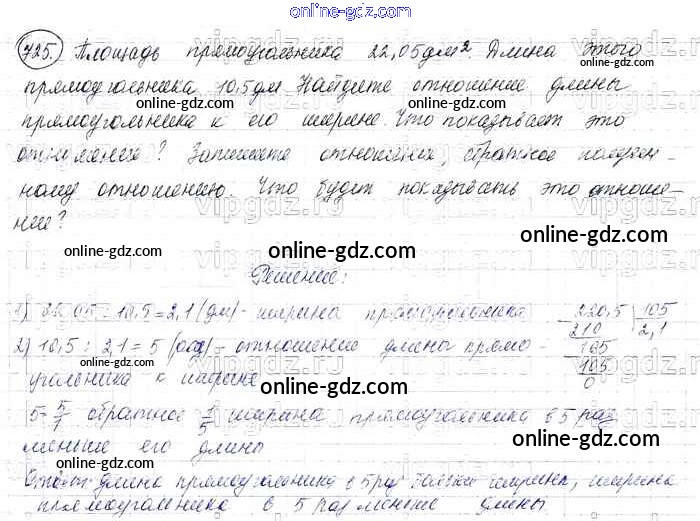 online-gdz.com
725. Площадь прямоугольника 22,05дм². Длина этого
прямоугольника 10,5дм. Найдите отношение длины
online-gdz.com online-gdz.com
прямоугольника к его ширине. Что показывает это
отношение? Запишите отношение, обратное получен-
online-gdz.com
ному отношению. Что будет показывать это отноше-
ние?
online-gdz.com online-gdz.com
Решение:
1) 22,05 : 10,5 = 2,1 (дм) - ширина прямоугольника
220,5 | 105
210 2,1
105
105
0
2) 10,5 : 2,1 = 5 - отношение длины прямо-
угольника к ширине
online-gdz.com
5 = 5/1 обратное 1/5 ширина прямоугольника в 5 раз
меньше его длины
online-gdz.com
Ответ: длина прямоугольника в 5 раз ширины, ширина
прямоугольника в 5 раз меньше длины
online-gdz.com